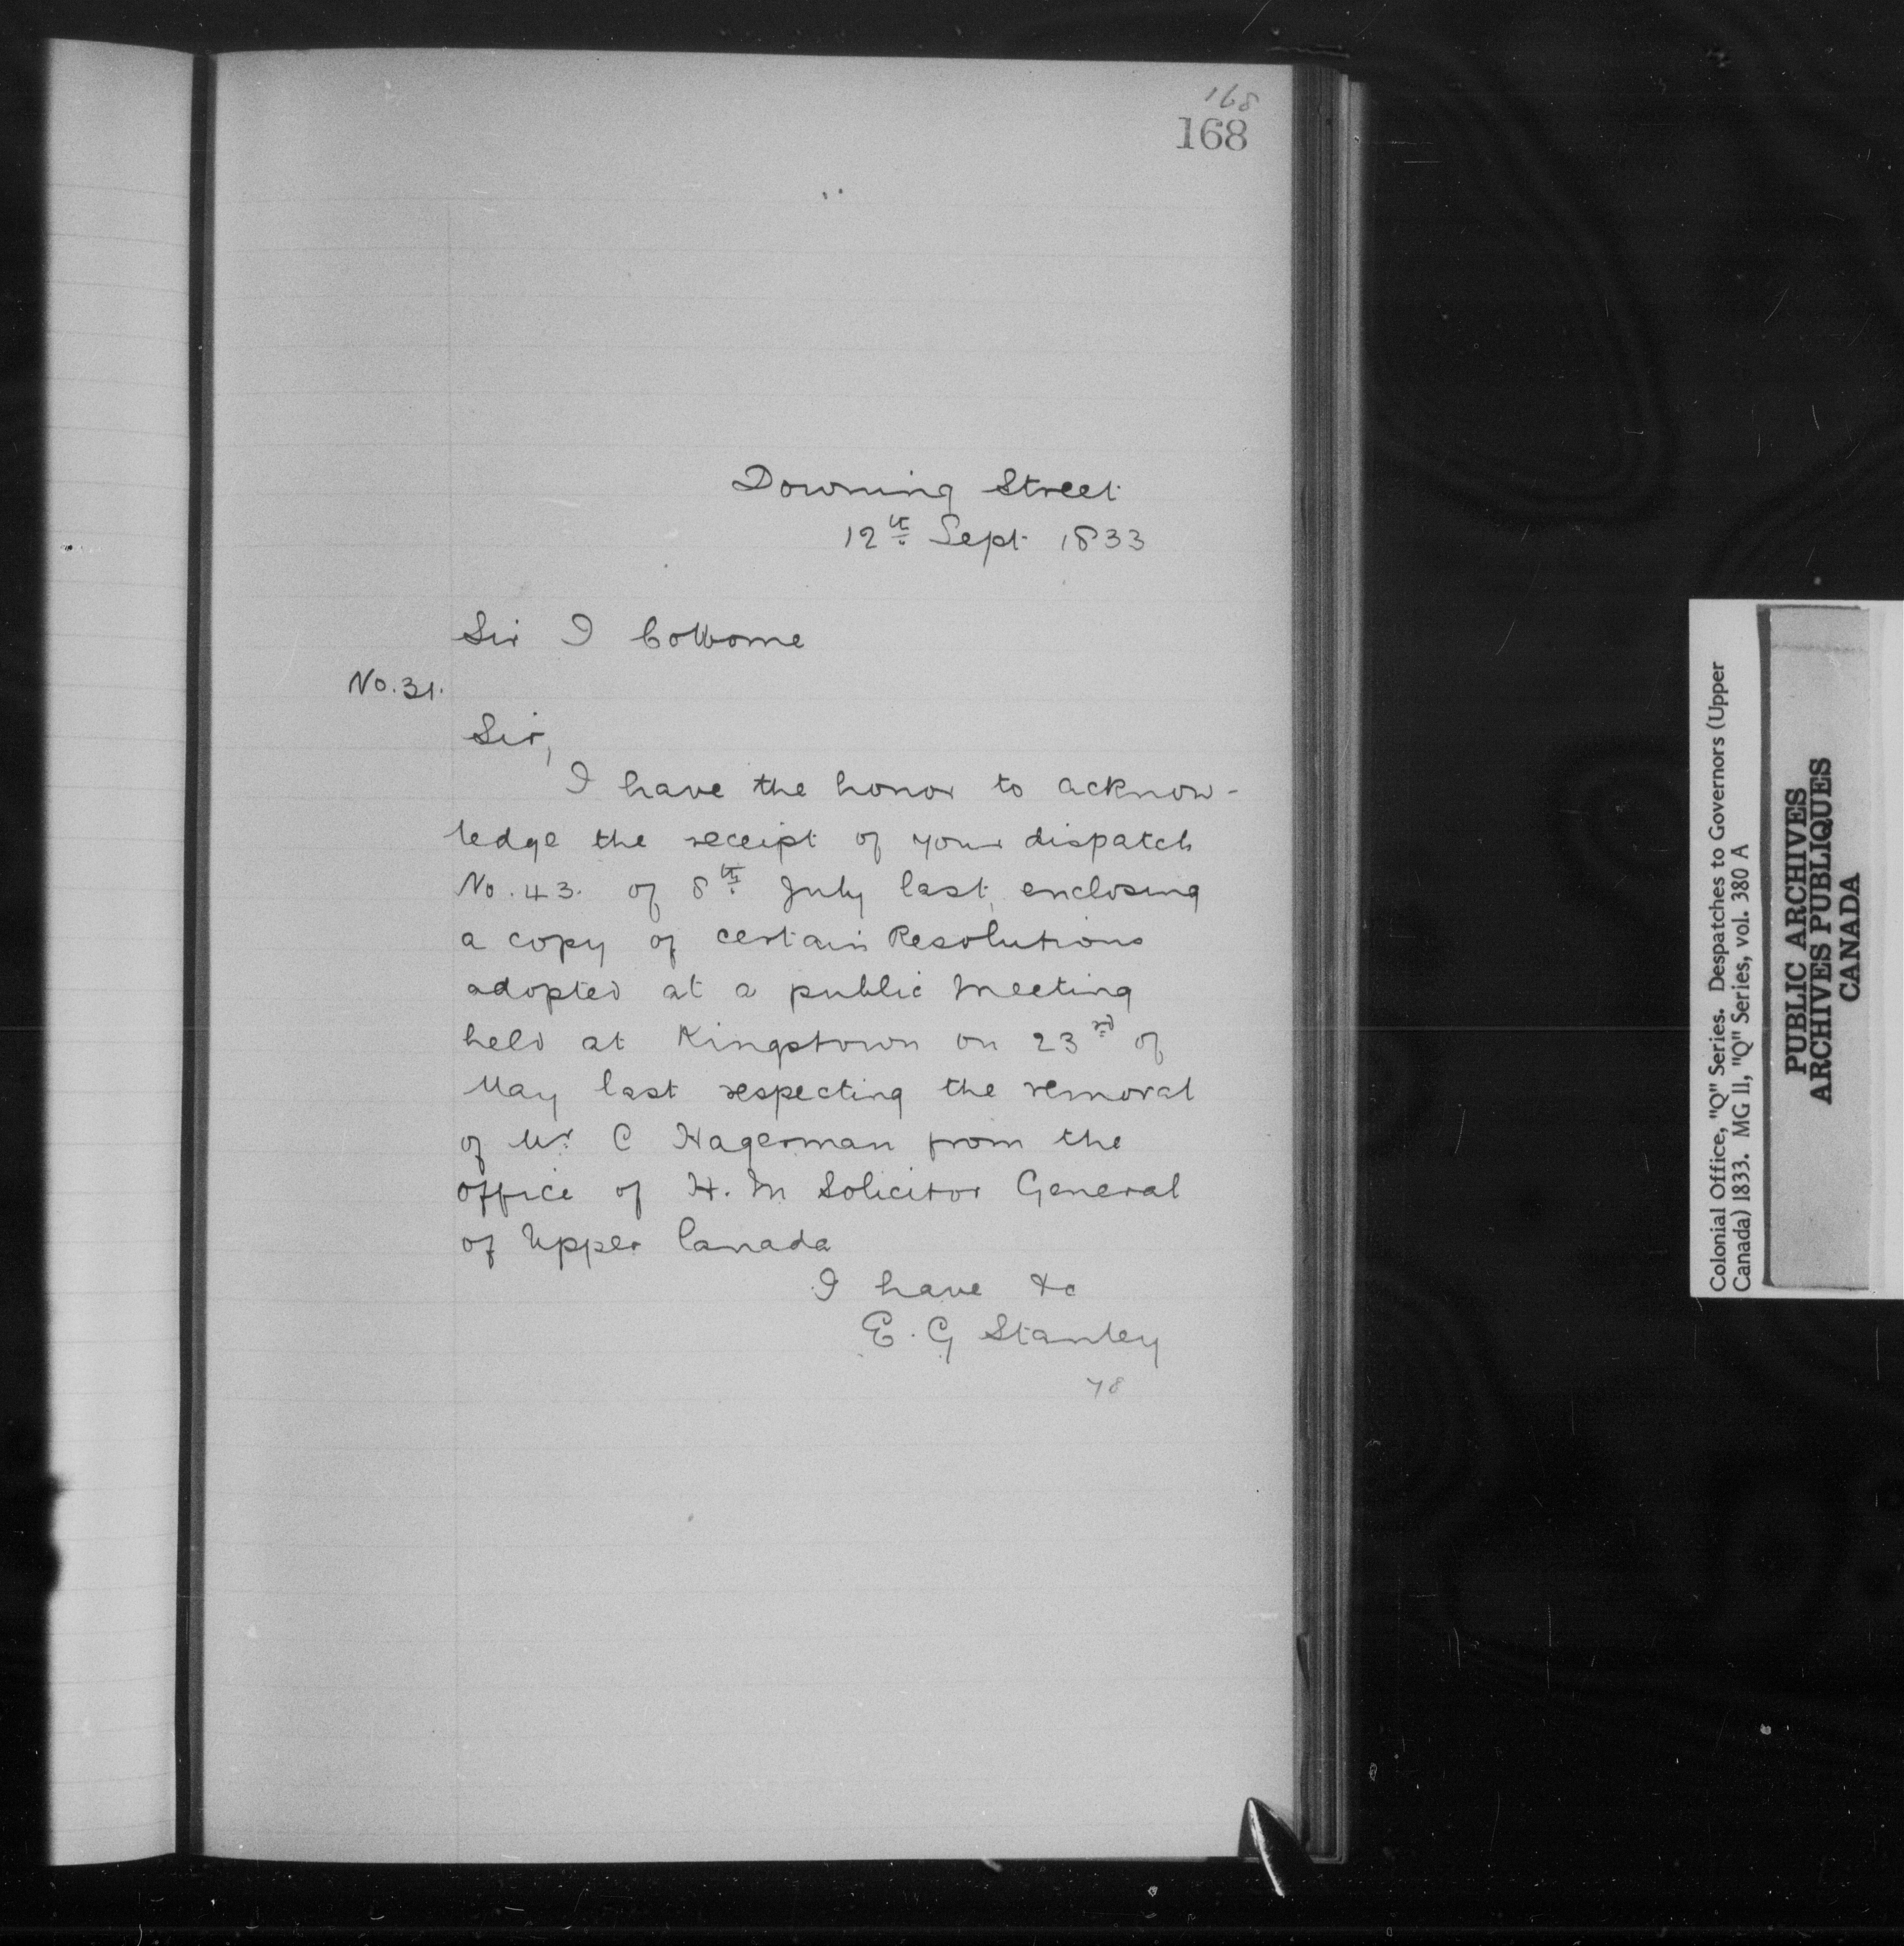 168
168
Downing Street
12th Sept. 1833
Sir J Colborne
No. 31.
Sir,
I have the honor to acknow-
ledge the receipt of your dispatch
No. 43. of 8th July last, enclosing
a copy of certain Resolutions
adopted at a public Meeting
held at Kingstown on 23rd of
May last respecting the removal
of Mr C Hagerman from the
office of H. M Solicitor General
of Upper Canada
I have &c
E. G Stanley
78
Colonial Office, "Q" Series. Despatches to Governors (Upper
Canada) 1833. MG 11, "Q" Series, vol. 380 A
PUBLIC ARCHIVES
ARCHIVES PUBLIQUES
CANADA